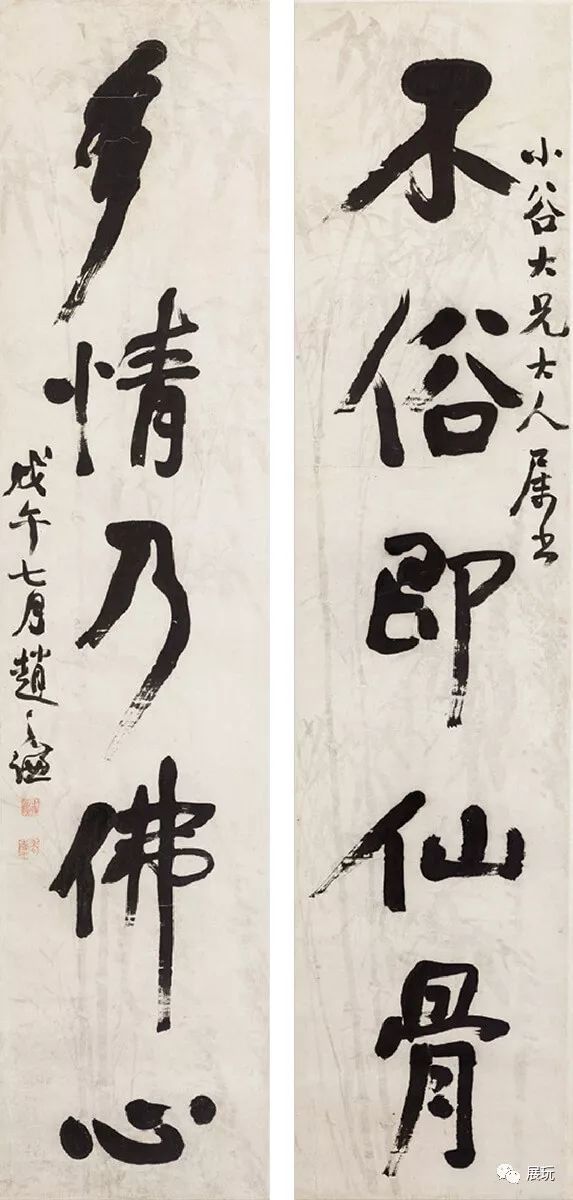 小谷大兄大人属书
不俗即仙骨
多情乃佛心
戊午七月趙之谦
展玩